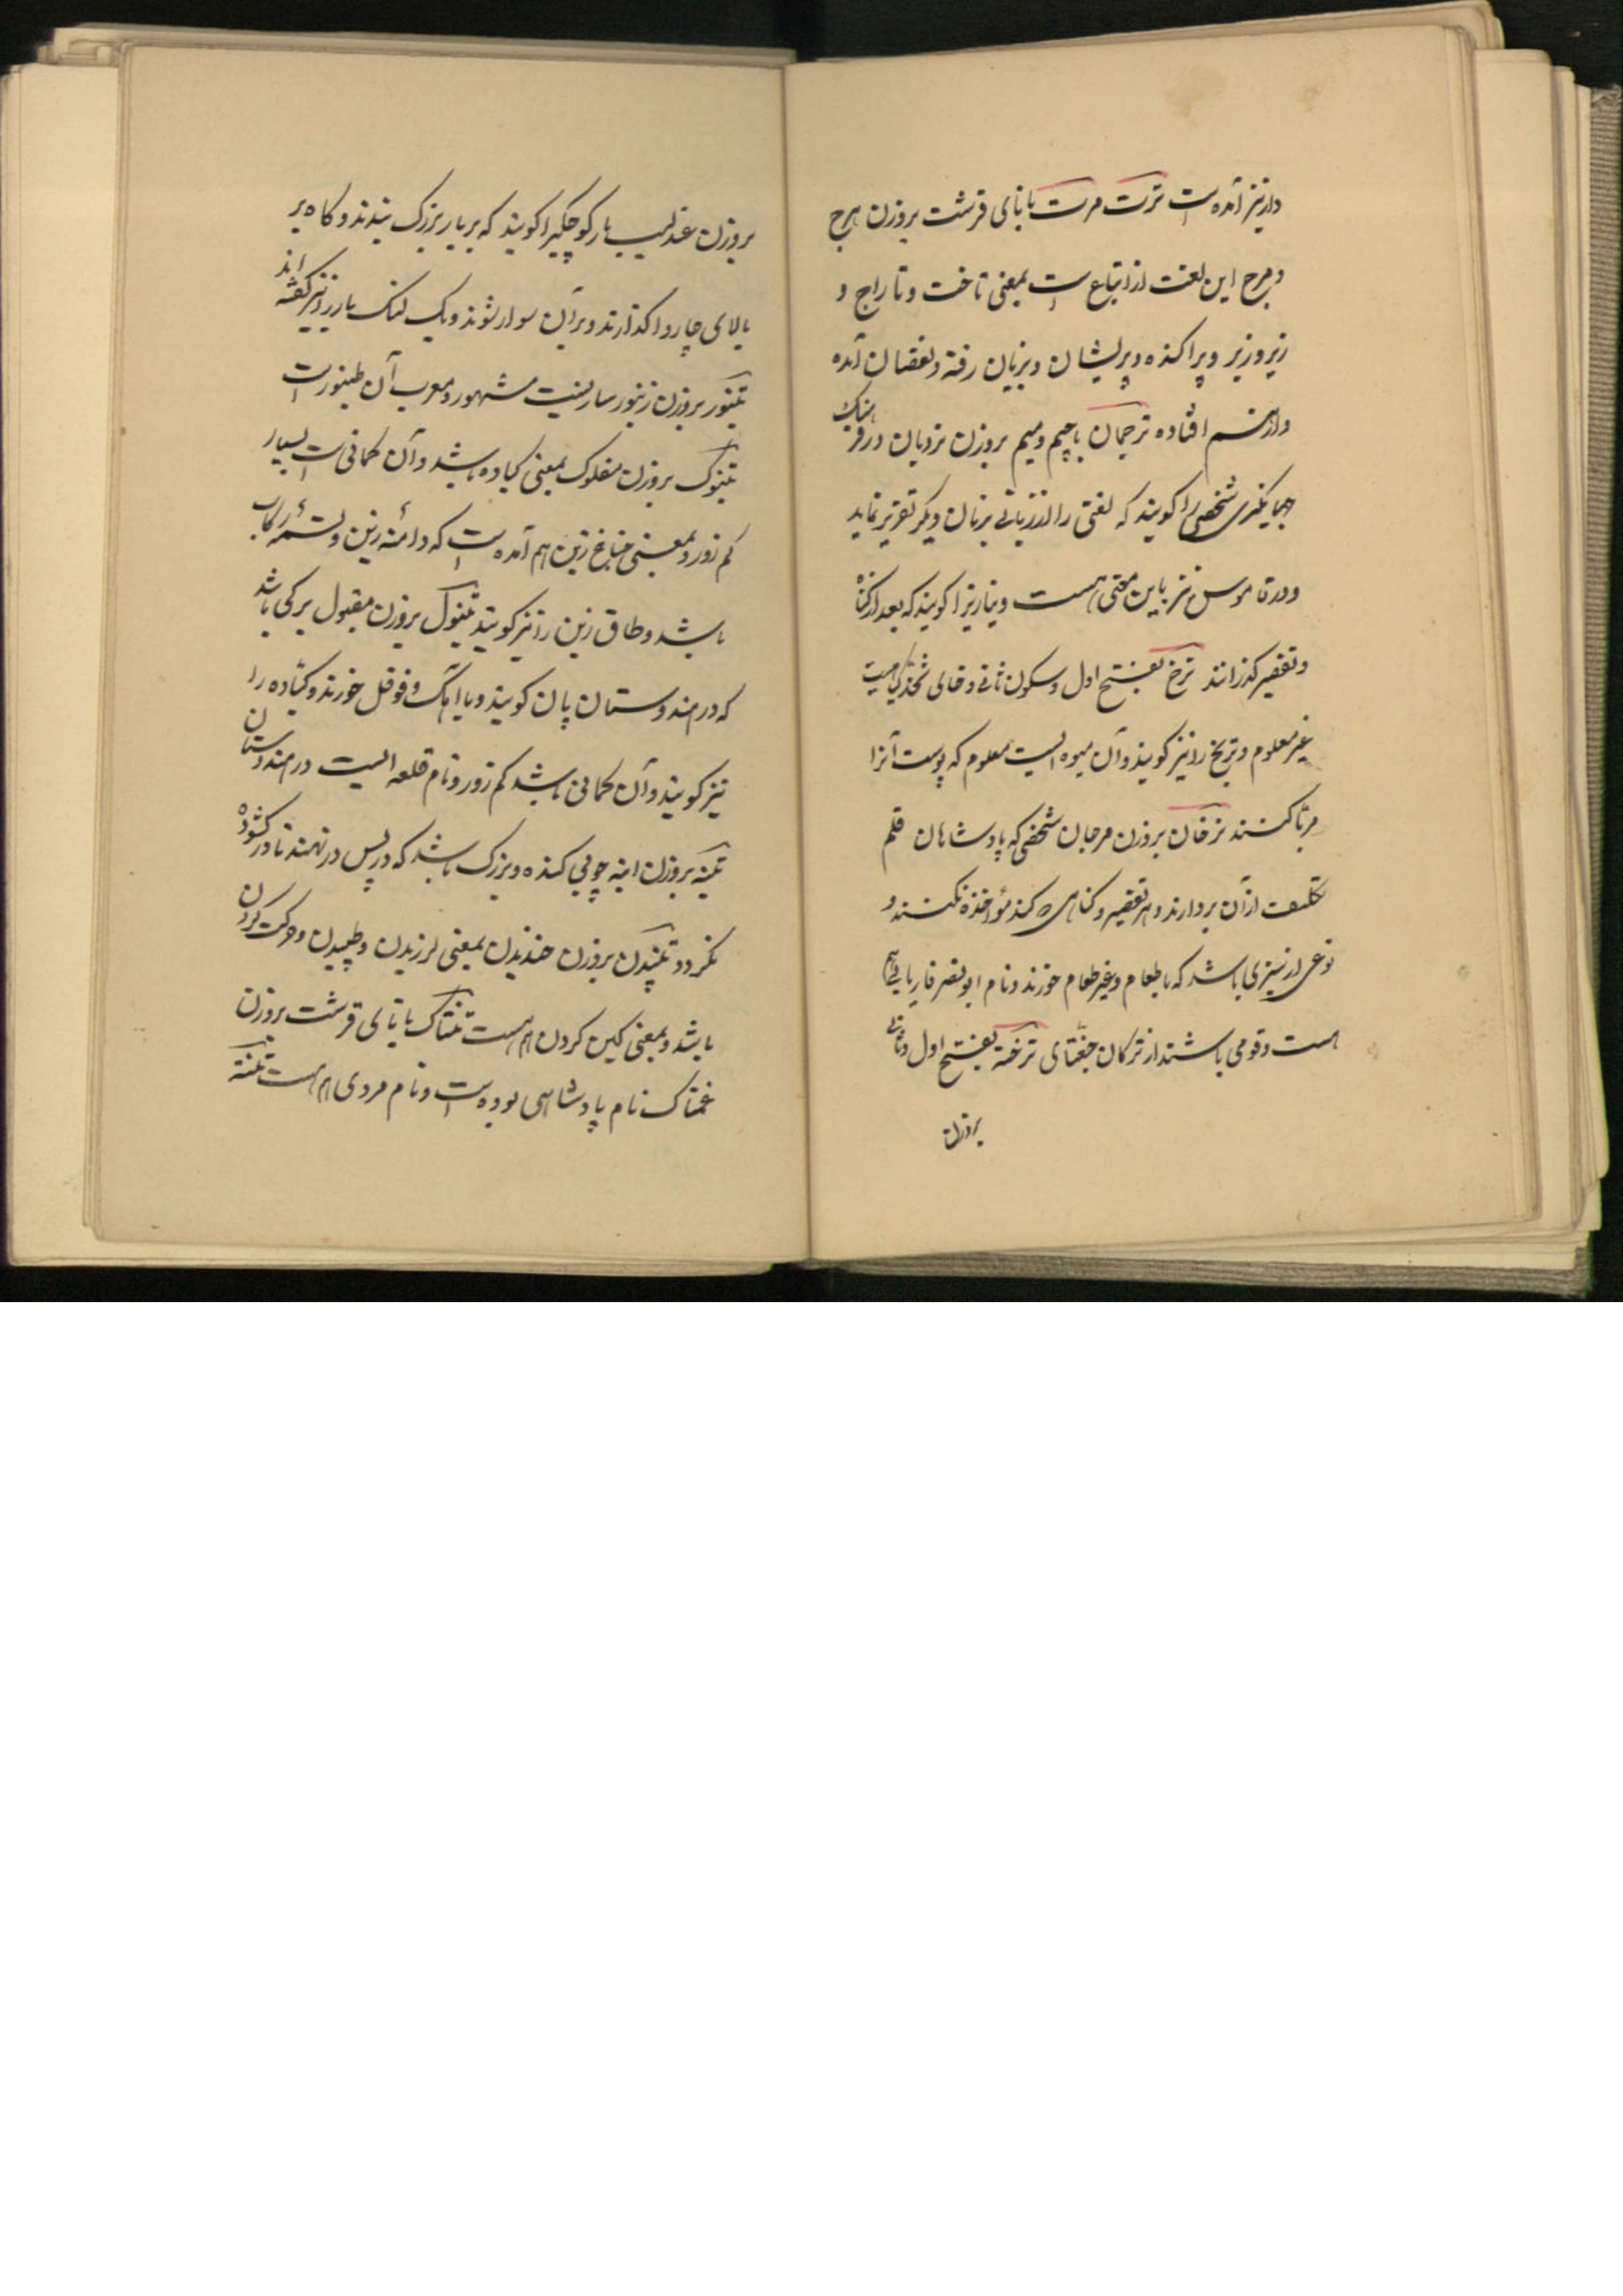 دار نیز آمده است ترت مرت با تای قرشت بروزن هرج
و مرج این لغت از اتباع است بمعنی تاخت و تاراج و
زیر و زبر و پراکنده و پریشان و بزیان رفته و نقصان آمده
و از هم افتاده ترجمان با جیم و میم بروزن نردبان در فرهنک
جهانکیری شخصی را کویند که لغتی را از زبانی بزبان دیکر تقریر نماید
و در قاموس نیز باین معنی هست و نیازیرا کویند که بعد از کناه
و تقصیر کذرانند ترخ بفتح اول و سکون ثانی و خای ثخذ کیاهیست
غیر معلوم و ترنج را نیز کویند و آن میوه ایست معلوم که پوست آنرا
مربا کنند ترخان بروزن مرجان شخصی که پادشاهان قلم
تکلیف از آن بردارند و هر تقصیر و کناهی که کند مؤاخذه نکنند و
نوعی از سبزی باشد که با طعام و غیر طعام خورند و نام ابو نصر فاریابی هم
هست و قومی باشند از ترکان جغتای ترخنه بفتح اول و ثانی
بروزن
بروزن عندلیب بار کوچکیرا کویند که بر بار بزرک بندند و کاه بر
بالای چاروا کذارند و بر آن سوار شوند و یک لنک بار را نیز کفته اند
تنبور بروزن زنبور سازیست مشهور و معرب آن طنبور است
تنبوک بروزن مفلوک بمعنی کباده باشد و آن کمانی است بسیار
کم زور و بمعنی جناغ زین هم آمده است که دامنه زین و تسمه رکاب
باشد و طاق زین را نیز کویند تنبول بروزن مقبول برکی باشد
که در هندوستان پان کویند و با آهک و فوفل خورند و کباده را
نیز کویند و آن کمانی باشد کم زور و نام قلعه ایست در هندوستان
تنبه بروزن انبه چوبی کنده و بزرک باشد که در پس در نهند تا در کشوده
نکردد تنبیدن بروزن جنبیدن بمعنی لرزیدن و طپیدن و حرکت کردن
باشد و بمعنی کمین کردن هم هست تنتاک با تای قرشت بروزن
غمناک نام پادشاهی بوده است و نام مردی هم هست تنته